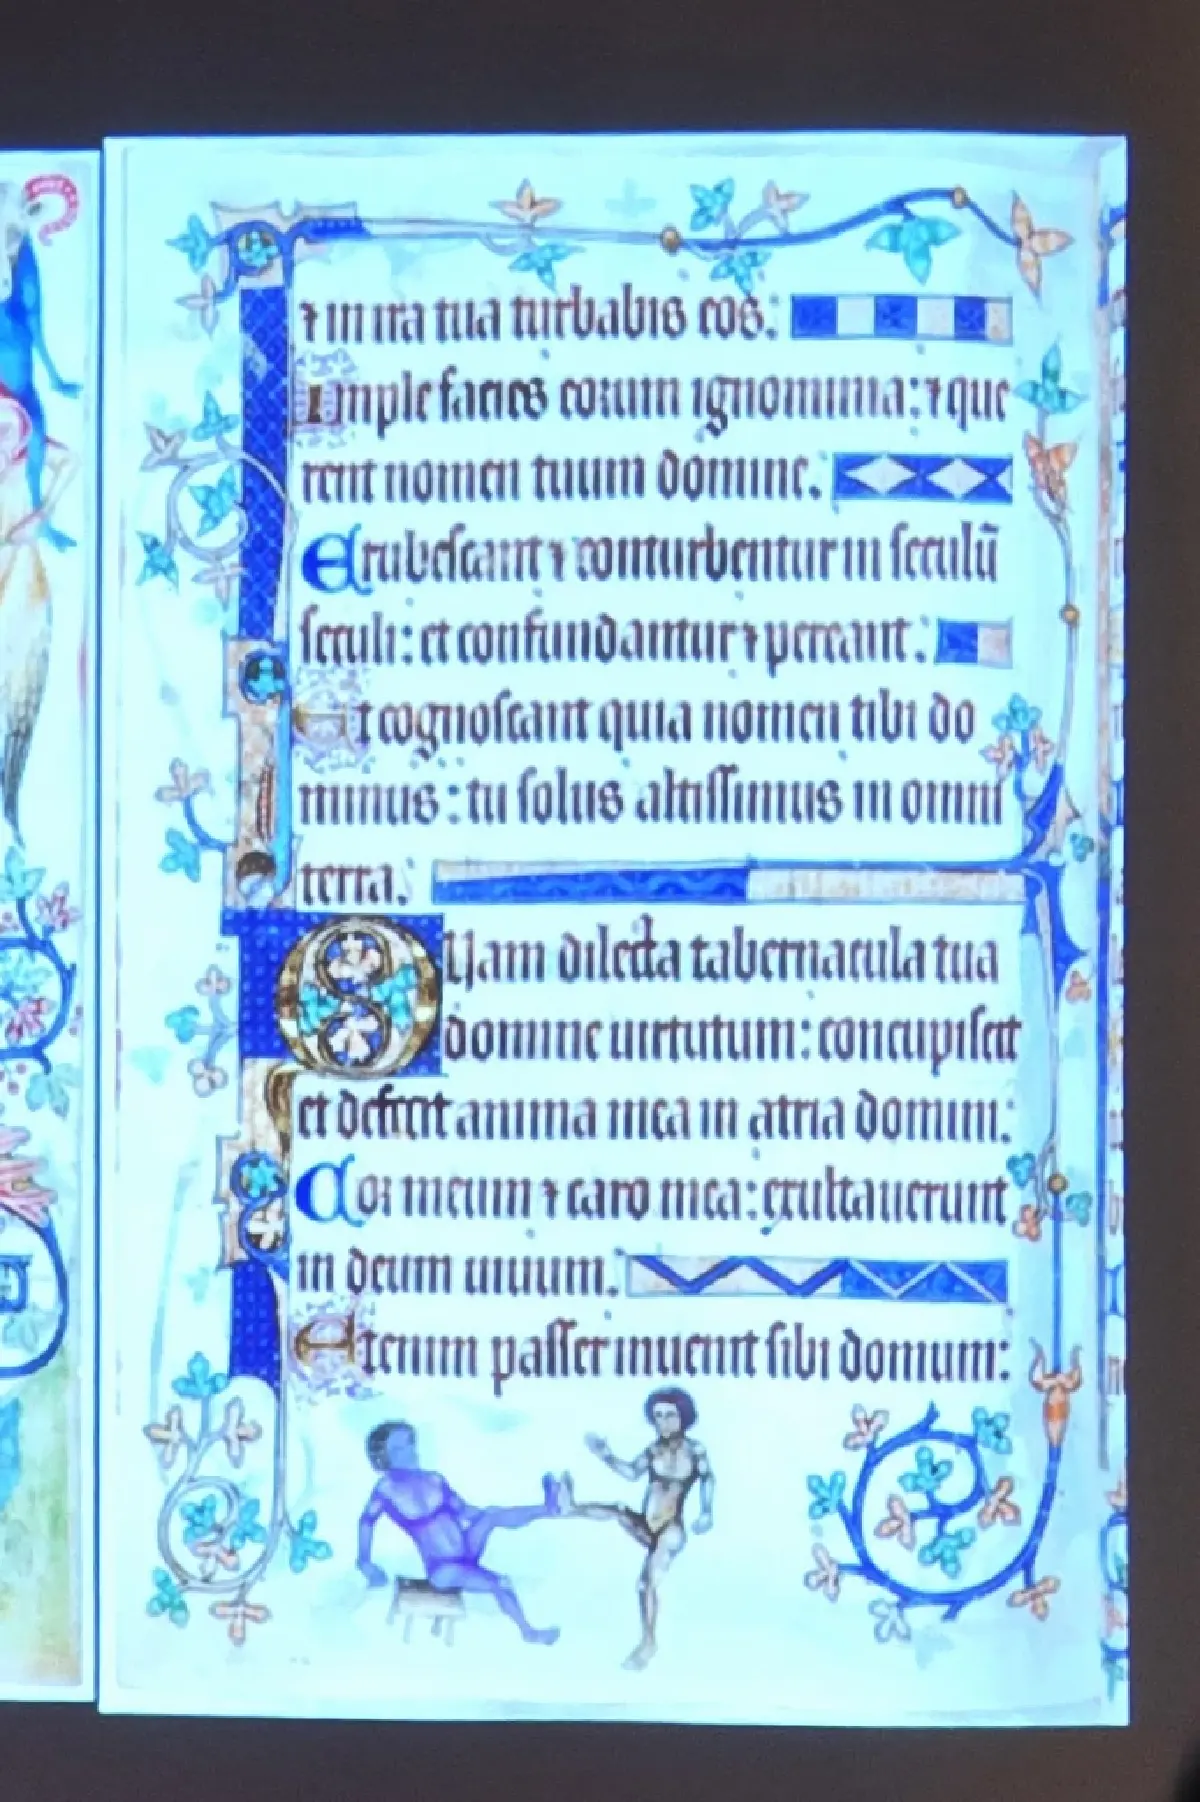 ⁊ in ira tua turbabis eos.
Imple facies eorum ignominia: ⁊ que
rent nomen tuum domine.
Erubescant ⁊ conturbentur in seculū
seculi: et confundantur ⁊ pereant.
Et cognoscant quia nomen tibi do
minus: tu solus altissimus in omni
terra.
Quam dilecta tabernacula tua
domine uirtutum: concupiscit
et deficit anima mea in atria domini:
Cor meum ⁊ caro mea: exultauerunt
in deum uiuum.
Etenim passer inuenit sibi domum: